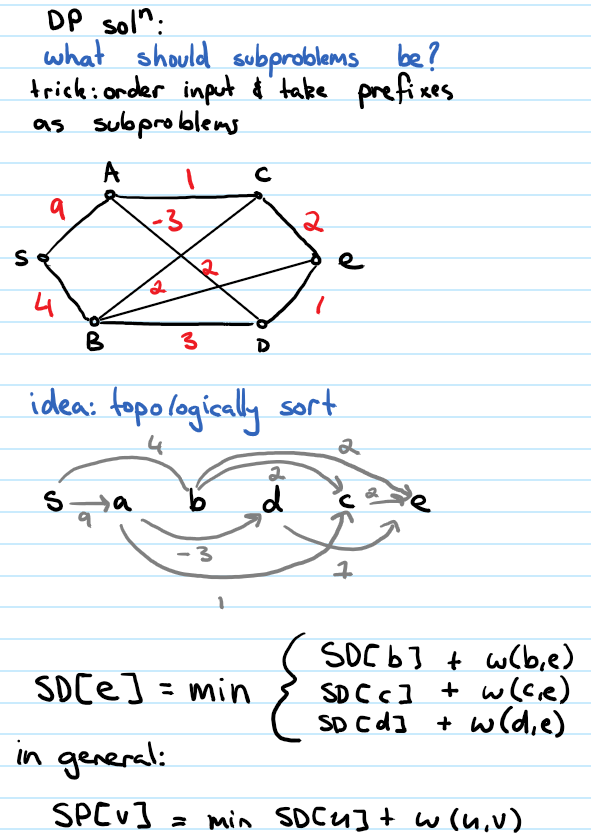 DP solⁿ:
what should subproblems be?
trick: order input & take prefixes
as subproblems
A 1 C
9 -3 2
S 2 e
4 2 1
B 3 D
idea: topologically sort
4 2
2
s a b d c 2 e
9
-3 1
1
SD[b] + w(b,e)
SD[e] = min { SD[c] + w(c,e)
SD[d] + w(d,e)
in general:
SP[v] = min SD[u] + w(u,v)